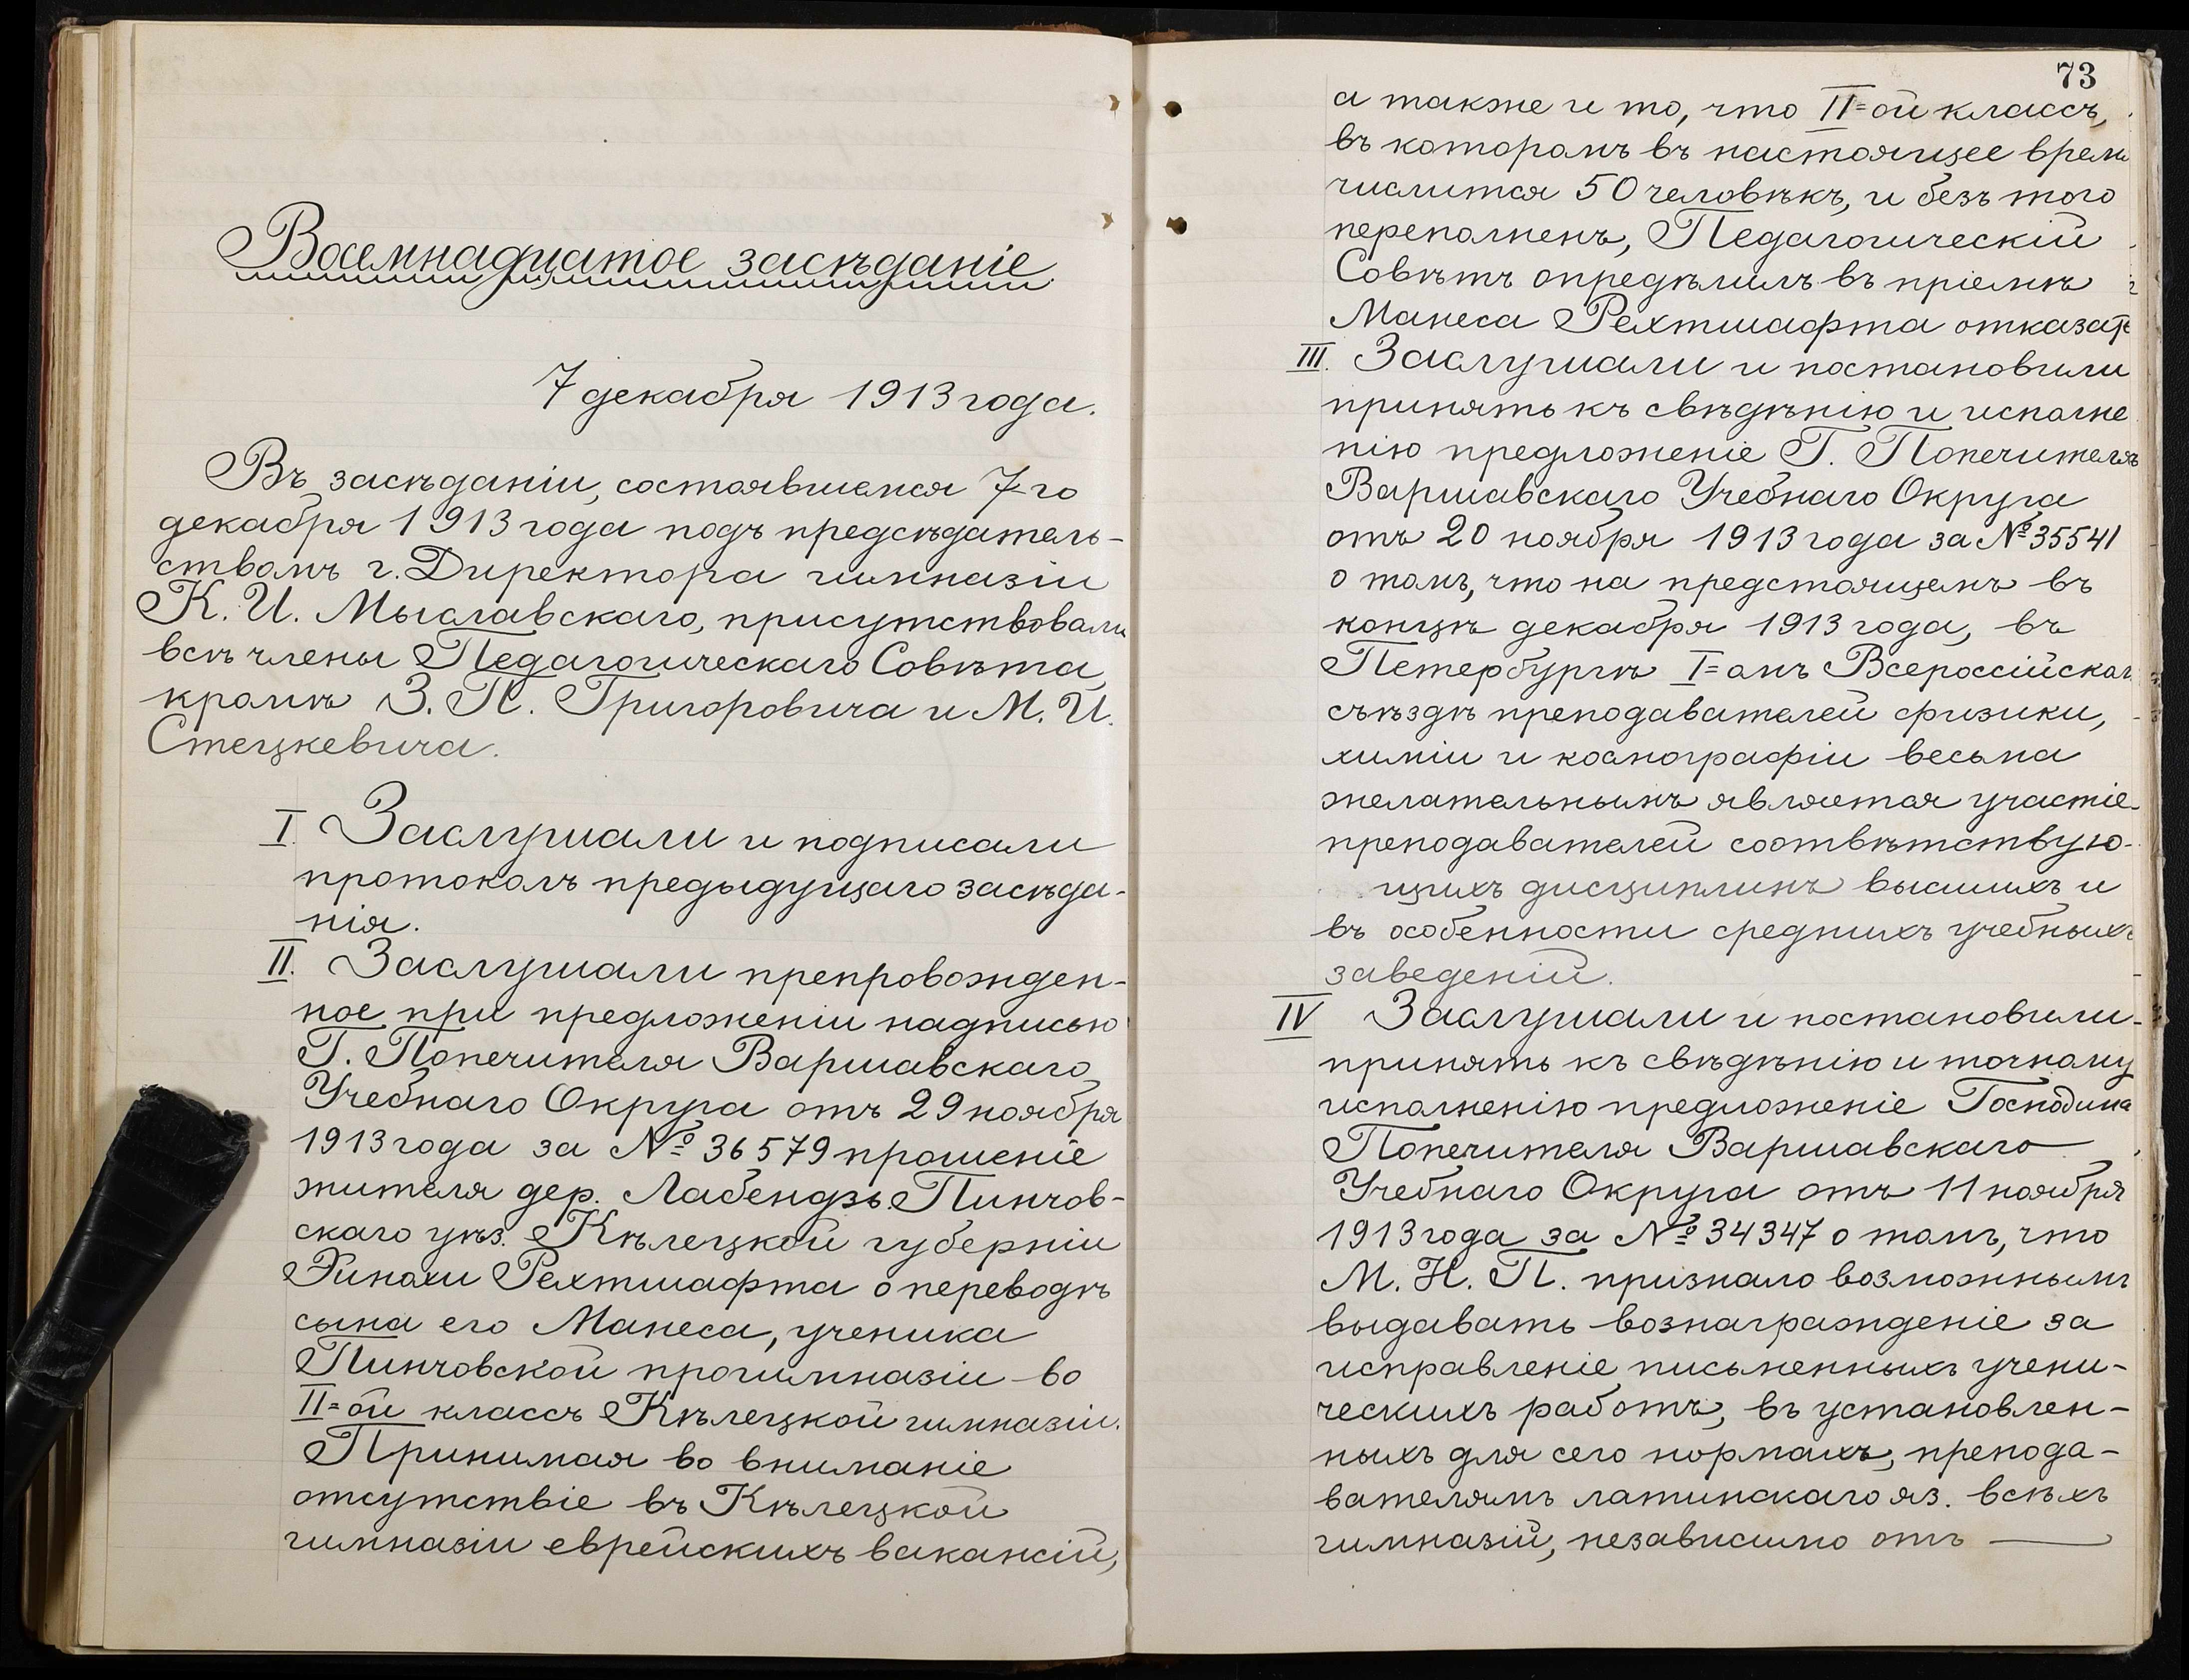 Восемнадцатое засѣданіе.
7 декабря 1913 года.
Въ засѣданіи, состоявшемся 7-го
декабря 1913 года подъ предсѣдатель-
ствомъ г. Директора гимназіи
К. И. Мыславскаго, присутствовали
всѣ члены Педагогическаго Совѣта,
кромѣ З. П. Григоровича и М. И.
Стецкевича.
I. Заслушали и подписали
протоколъ предыдущаго засѣда-
нія.
II. Заслушали препровожден-
ное при предложеніи надписью
Г. Попечителя Варшавскаго
Учебнаго Округа отъ 29 ноября
1913 года за № 36579 прошеніе
жителя дер. Лабендзь Пинчов-
скаго уѣз. Кѣлецкой губерніи
Хинахи Рехтшафта о переводѣ
сына его Манеса, ученика
Пинчовской прогимназіи во
II=ой классъ Кѣлецкой гимназіи.
Принимая во вниманіе
отсутствіе въ Кѣлецкой
гимназіи еврейскихъ вакансій,
73
а также и то, что II=ой классъ,
въ которомъ въ настоящее время
числится 50 человѣкъ, и безъ того
переполненъ, Педагогическій
Совѣтъ опредѣлилъ въ пріемѣ
Манеса Рехтшафта отказать
III. Заслушали и постановили
принять къ свѣдѣнію и исполне
нію предложеніе Г. Попечителя
Варшавскаго Учебнаго Округа
отъ 20 ноября 1913 года за № 35541
о томъ, что на предстоящемъ въ
концѣ декабря 1913 года, въ
Петербургѣ I=омъ Всероссійском
съѣздѣ преподавателей физики,
химіи и космографіи весьма
желательнымъ является участіе
преподавателей соотвѣтствую-
щихъ дисциплинъ высшихъ и
въ особенности среднихъ учебныхъ
заведеній.
IV Заслушали и постановили
принять къ свѣдѣнію и точному
исполненію предложеніе Господина
Попечителя Варшавскаго
Учебнаго Округа отъ 11 ноября
1913 года за № 34347 о томъ, что
М. Н. П. признало возможнымъ
выдавать вознагражденіе за
исправленіе письменныхъ учени-
ческихъ работъ, въ установлен-
ныхъ для сего нормахъ, препода-
вателямъ латинскаго яз. всѣхъ
гимназій, независимо отъ —